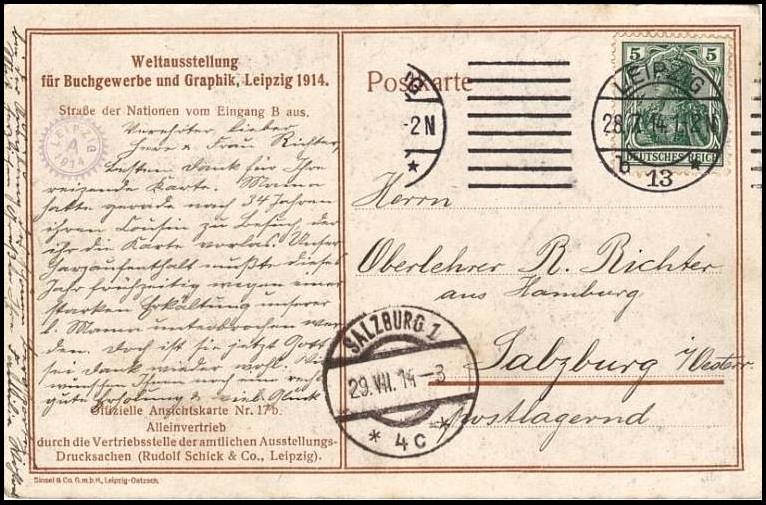 Weltausstellung
für Buchgewerbe und Graphik, Leipzig 1914.
Straße der Nationen vom Eingang B aus.
LEIPZIG
A
1914
Verehrter, lieber
Herr u. Frau Richter,
besten Dank für Ihre
reizende Karte. Mama
hatte gerade nach 34 Jahren
ihren Cousin zu Besuch, der
ihr die Karte vorlas. Unser
Harzaufenthalt mußte dieses
Jahr frühzeitig wegen einer
starken Erkältung unserer
l. Mama unterbrochen wer
den. Doch ist sie jetzt Gott
sei Dank wieder wohl. Wir
wünschen Ihnen noch eine recht
gute Erholung & viel Glück
Offizielle Ansichtskarte Nr. 17b.
Alleinvertrieb
durch die Vertriebsstelle der amtlichen Ausstellungs-
Drucksachen (Rudolf Schick & Co., Leipzig).
Sinsel & Co. G.m.b.H., Leipzig-Oetzsch.
Postkarte
-2 N
*
5 5
DEUTSCHES REICH
LEIPZIG
28.7.14.
13
Herrn
Oberlehrer R. Richter
aus Hamburg
Salzburg
postlagernd
SALZBURG 1
29.VII.14-3
* 4c *